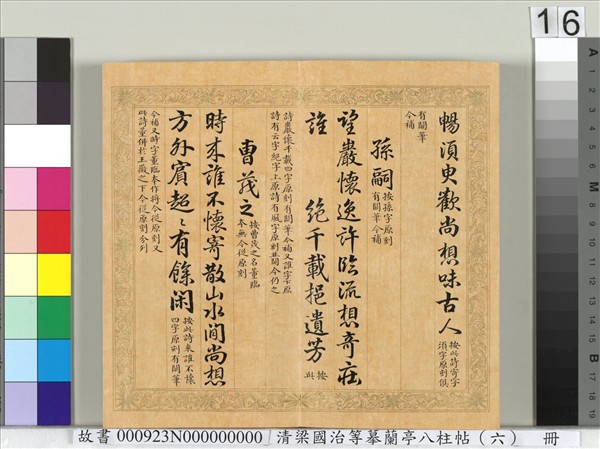 16
暢須臾歡尚想味古人 按此詩寄字
須字原刻俱
有闕筆
今補
孫嗣 按孫字原刻
有闕筆今補
望巖懷逸許臨流想奇莊
誰 絶千載挹遺芳 按此
詩巖懷千載四字原刻有闕筆今補又誰字下原
詩有云字絶字上原詩有風字原刻並闕今仍之
曹茂之 按曹茂之名董臨
本無今從原刻
時來誰不懷寄散山水間尚想
方外賓超〻有餘閑 按此詩來誰不懷
四字原刻有闕筆
今補又時字董臨本作將今從原刻又
此詩董倂於王薇之下今從原刻分列
故書 000923N000000000 清梁國治等摹蘭亭八柱帖（六） 冊